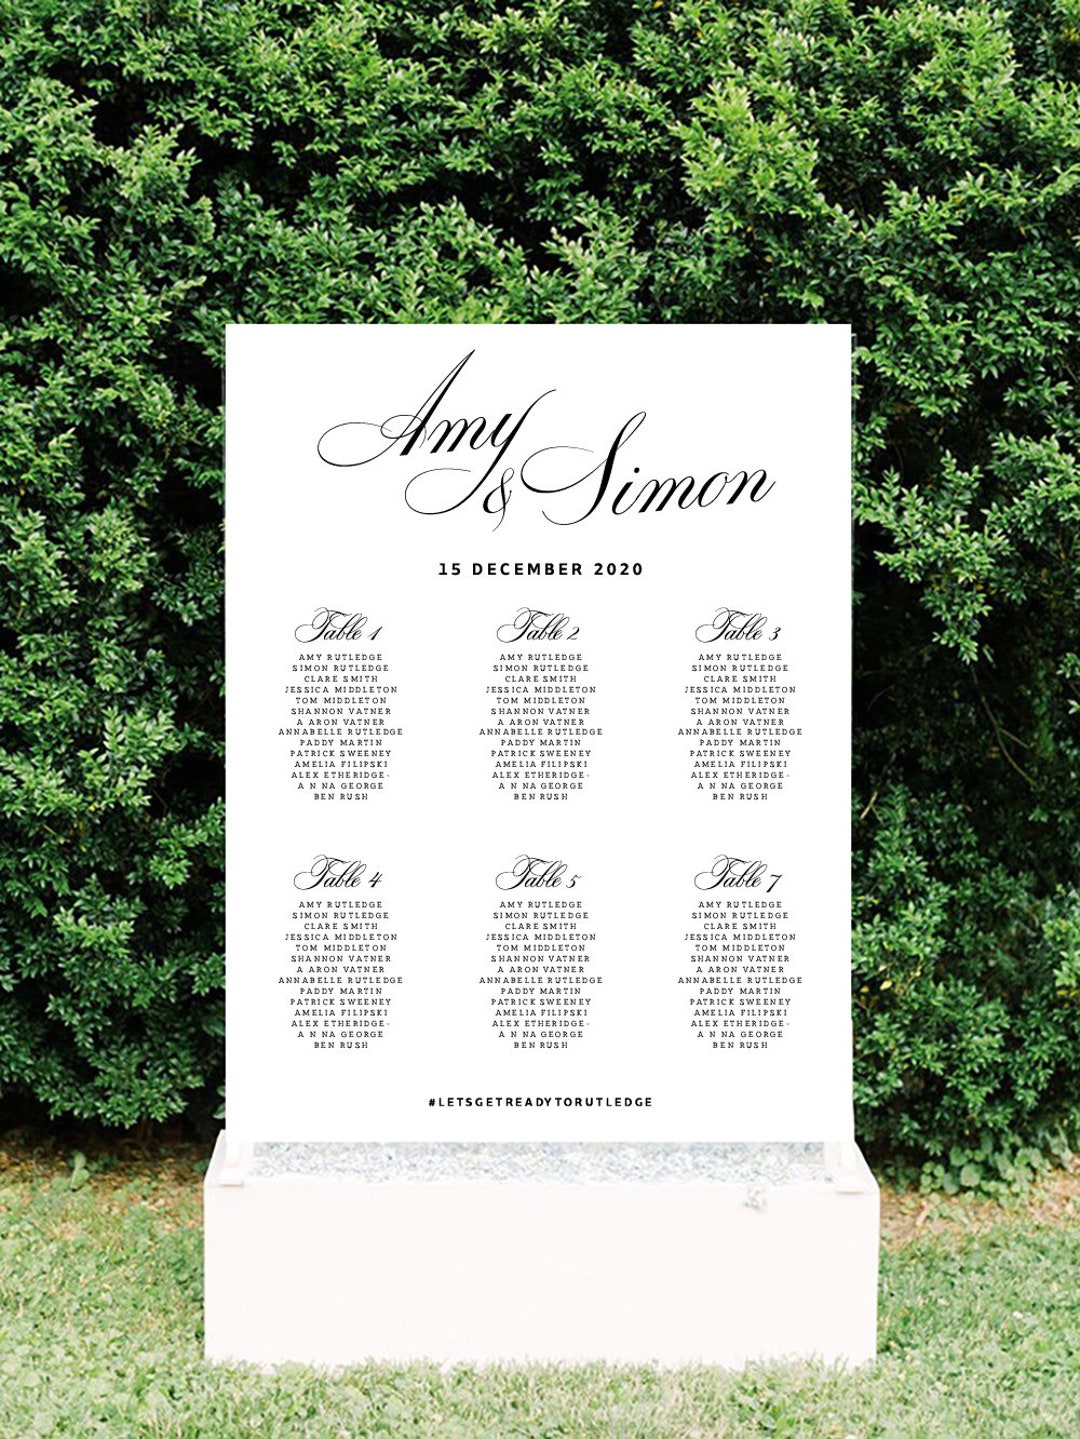 Amy
& Simon
15 DECEMBER 2020
Table 1
AMY RUTLEDGE
SIMON RUTLEDGE
CLARE SMITH
JESSICA MIDDLETON
TOM MIDDLETON
SHANNON VATNER
A ARON VATNER
ANNABELLE RUTLEDGE
PADDY MARTIN
PATRICK SWEENEY
AMELIA FILIPSKI
ALEX ETHERIDGE-
A N NA GEORGE
BEN RUSH
Table 2
AMY RUTLEDGE
SIMON RUTLEDGE
CLARE SMITH
JESSICA MIDDLETON
TOM MIDDLETON
SHANNON VATNER
A ARON VATNER
ANNABELLE RUTLEDGE
PADDY MARTIN
PATRICK SWEENEY
AMELIA FILIPSKI
ALEX ETHERIDGE-
A N NA GEORGE
BEN RUSH
Table 3
AMY RUTLEDGE
SIMON RUTLEDGE
CLARE SMITH
JESSICA MIDDLETON
TOM MIDDLETON
SHANNON VATNER
A ARON VATNER
ANNABELLE RUTLEDGE
PADDY MARTIN
PATRICK SWEENEY
AMELIA FILIPSKI
ALEX ETHERIDGE-
A N NA GEORGE
BEN RUSH
Table 4
AMY RUTLEDGE
SIMON RUTLEDGE
CLARE SMITH
JESSICA MIDDLETON
TOM MIDDLETON
SHANNON VATNER
A ARON VATNER
ANNABELLE RUTLEDGE
PADDY MARTIN
PATRICK SWEENEY
AMELIA FILIPSKI
ALEX ETHERIDGE-
A N NA GEORGE
BEN RUSH
Table 5
AMY RUTLEDGE
SIMON RUTLEDGE
CLARE SMITH
JESSICA MIDDLETON
TOM MIDDLETON
SHANNON VATNER
A ARON VATNER
ANNABELLE RUTLEDGE
PADDY MARTIN
PATRICK SWEENEY
AMELIA FILIPSKI
ALEX ETHERIDGE-
A N NA GEORGE
BEN RUSH
Table 7
AMY RUTLEDGE
SIMON RUTLEDGE
CLARE SMITH
JESSICA MIDDLETON
TOM MIDDLETON
SHANNON VATNER
A ARON VATNER
ANNABELLE RUTLEDGE
PADDY MARTIN
PATRICK SWEENEY
AMELIA FILIPSKI
ALEX ETHERIDGE-
A N NA GEORGE
BEN RUSH
#LETSGETREADYTORUTLEDGE